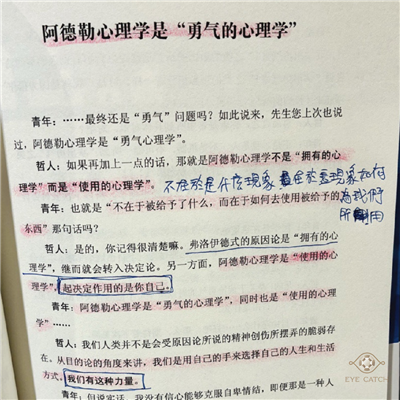 阿德勒心理学是“勇气的心理学”
青年：……最终还是“勇气”问题吗？如此说来，先生您上次也说
过，阿德勒心理学是“勇气心理学”。
哲人：如果再加上一点的话，那就是阿德勒心理学不是“拥有的心
理学”而是“使用的心理学”。
不在于是什么现象
现象如何
为我们
所用
青年：也就是“不在于被给予了什么，而在于如何去使用被给予的
东西”那句话吗？
哲人：是的，你记得很清楚嘛。弗洛伊德式的原因论是“拥有的心
理学”，继而就会转入决定论。另一方面，阿德勒心理学是“使用的心
理学”，起决定作用的是你自己。
青年：阿德勒心理学是“勇气的心理学”，同时也是“使用的心理
学”……
哲人：我们人类并不是会受原因论所说的精神创伤所摆弄的脆弱存
在。从目的论的角度来讲，我们是用自己的手来选择自己的人生和生活
方式。我们有这种力量。
青年：但说实话，我没有信心能够克服自卑情结，即便那是一种人
EYE CATCH